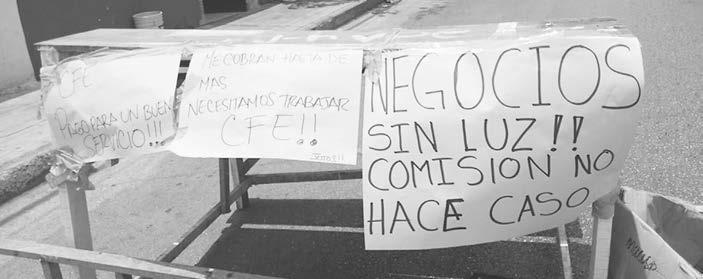 CFE
PAGO PARA UN BUEN
SERVICIO!!!
ME COBRAN HASTA DE
MAS
NECESITAMOS TRABAJAR
CFE!!
NEGOCIOS
SIN LUZ!!
COMISION NO
HACE CASO